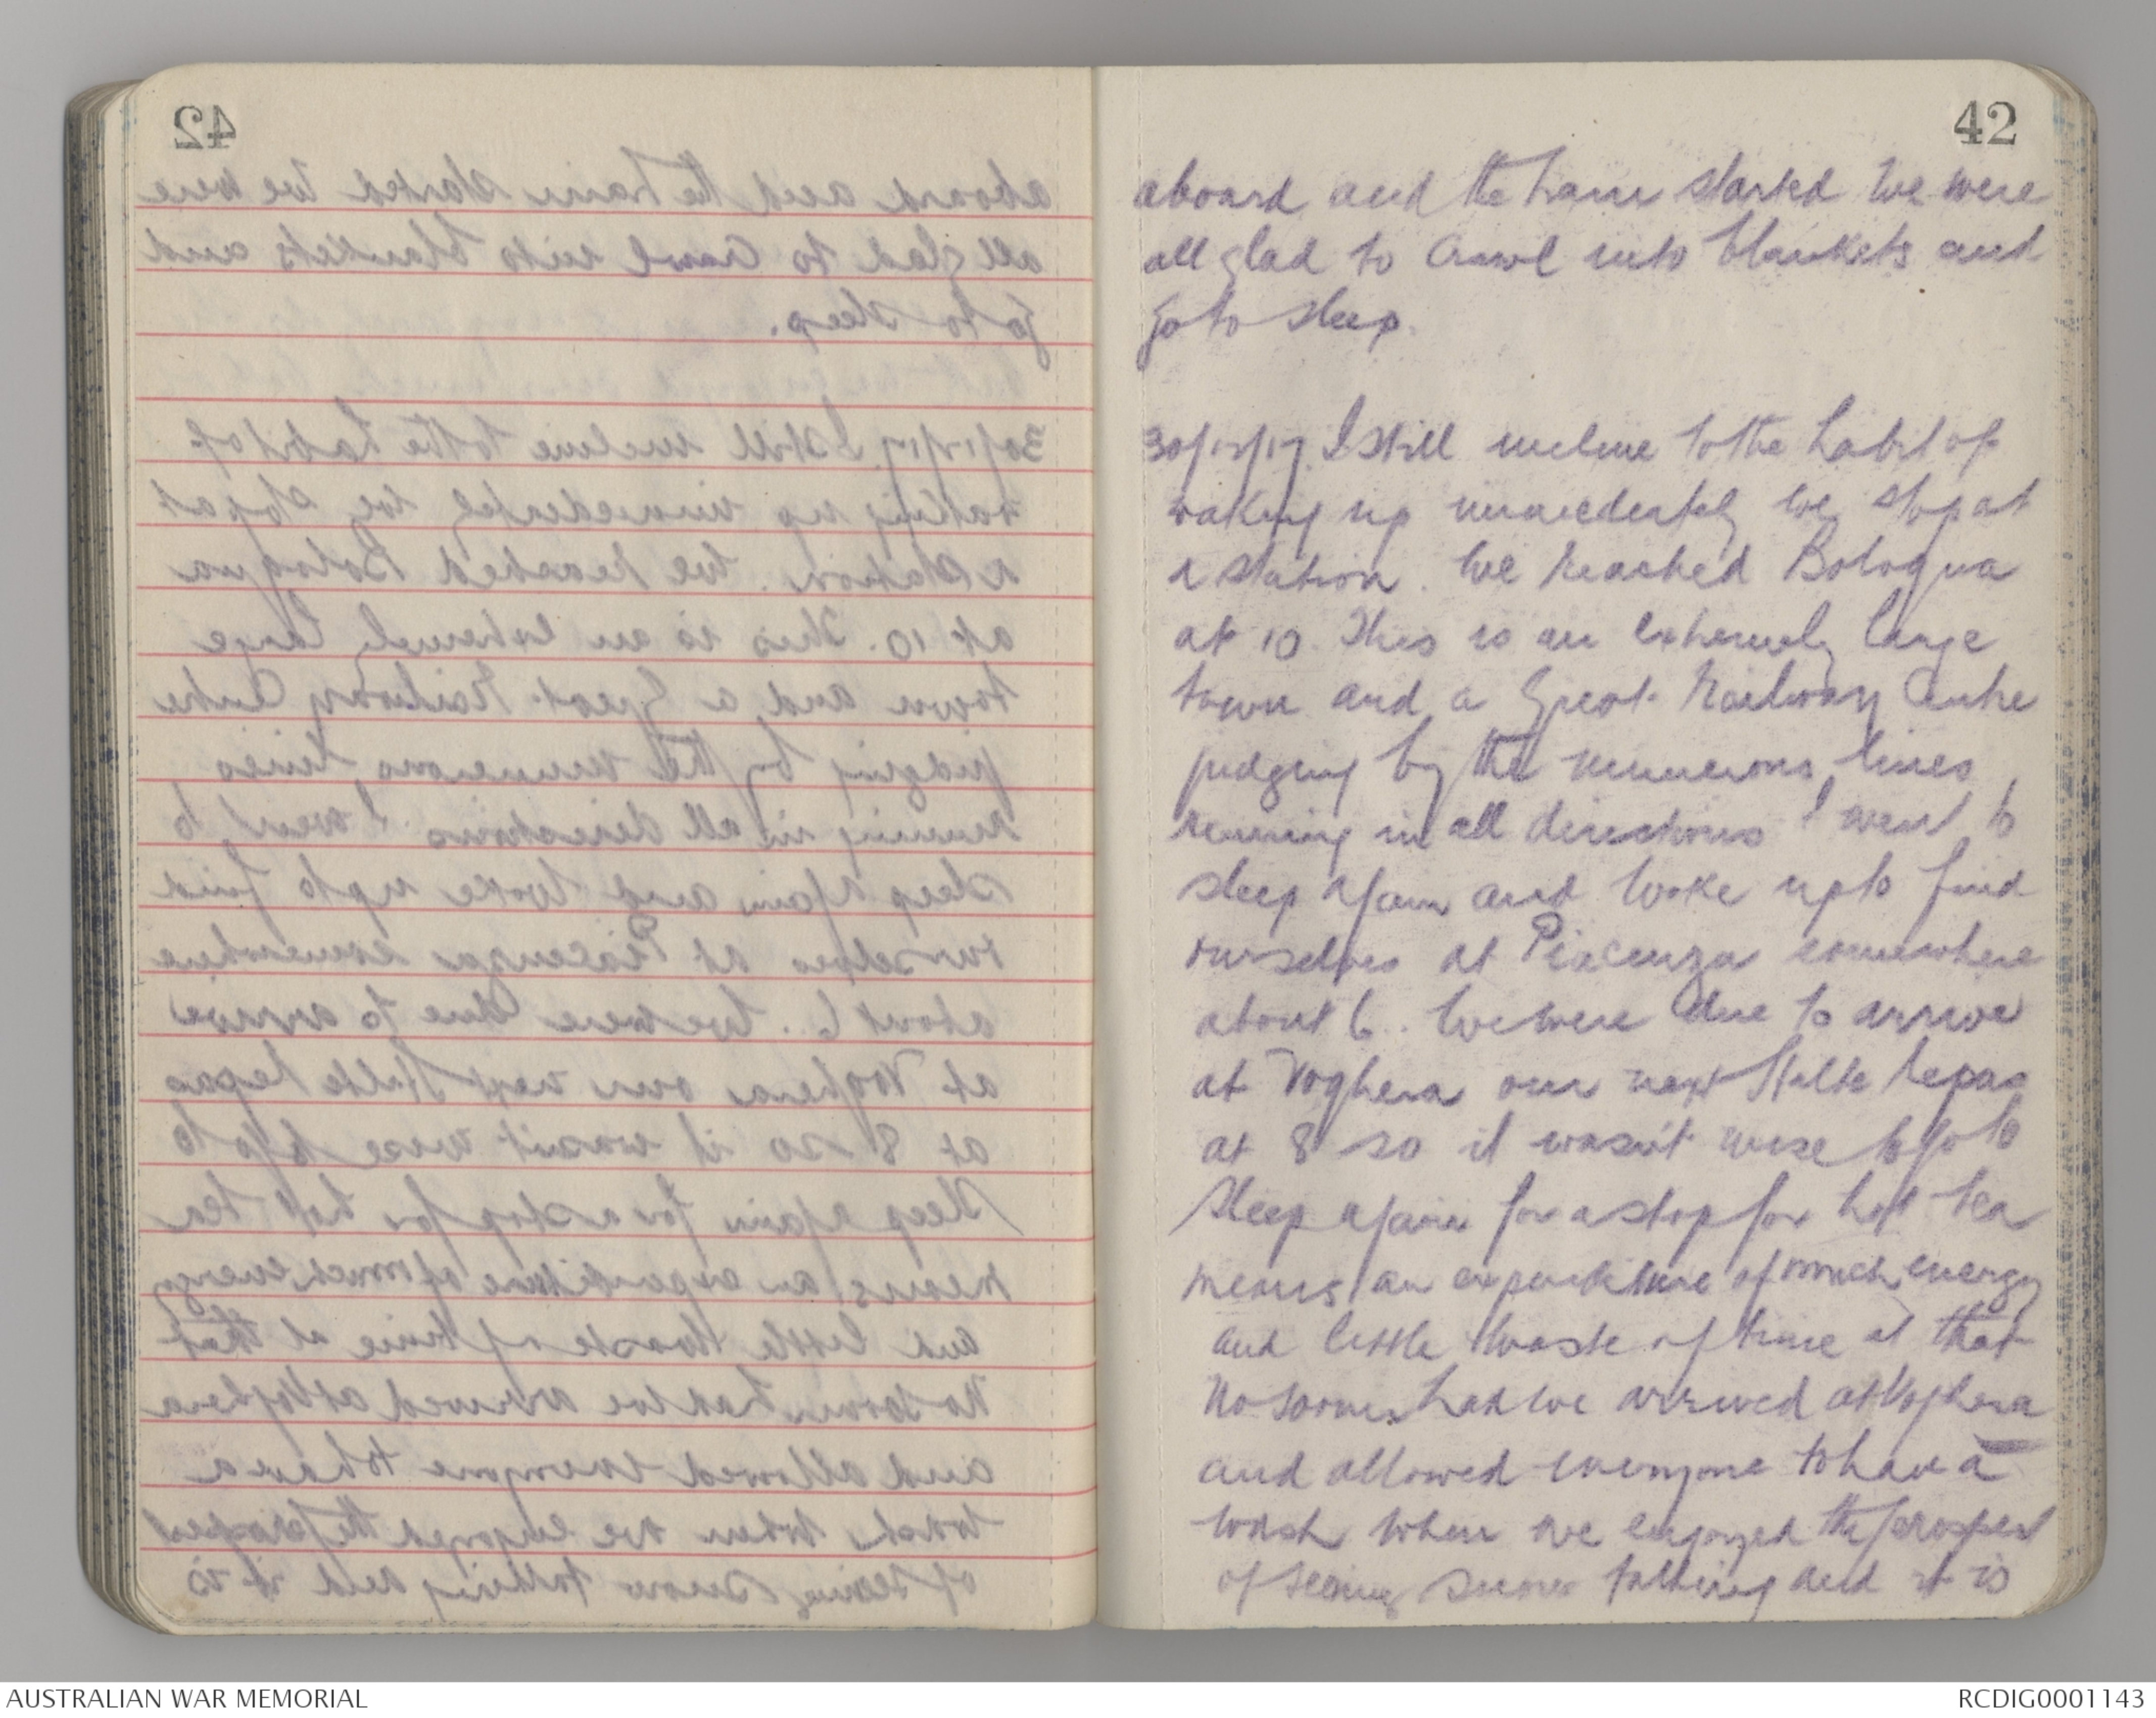 42
aboard and the train started we were
all glad to crawl into blankets and
go to sleep.
30/12/17. I still incline to the habit of
waking up immediately we stop at
a station. We reached Bologna
at 10. This is an extremely large
town and a great railway centre
judging by the numerous lines
running in all directions I went to
sleep again and woke up to find
ourselves at Piacenza somewhere
about 6.. We were due to arrive
at Voghera our next Halte Repas
at 8 so it wasn't wise to go to
sleep again for a stop for hot tea
means an expenditure of much energy
and little waste of time at that
No sooner had we arrived at Voghera
and allowed everyone to have a
wash when we enjoyed the prospect
of seeing snow falling and it is
AUSTRALIAN WAR MEMORIAL
RCDIG0001143